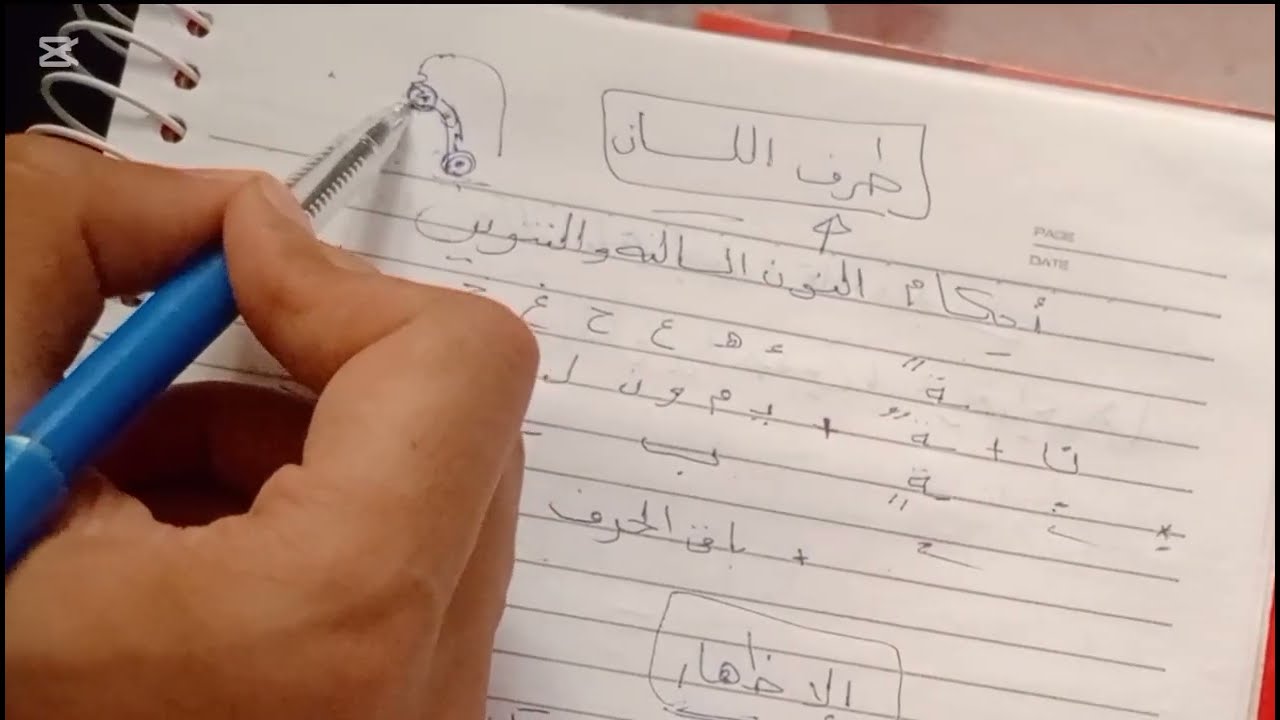 طرف اللسان
PAGE
DATE
أحكام النون الساكنة والتنوين
ء هـ ع ح غ خ
نْ + ـةً + ي م و ن ل
ب
+ باقي الحرف
الإظهار